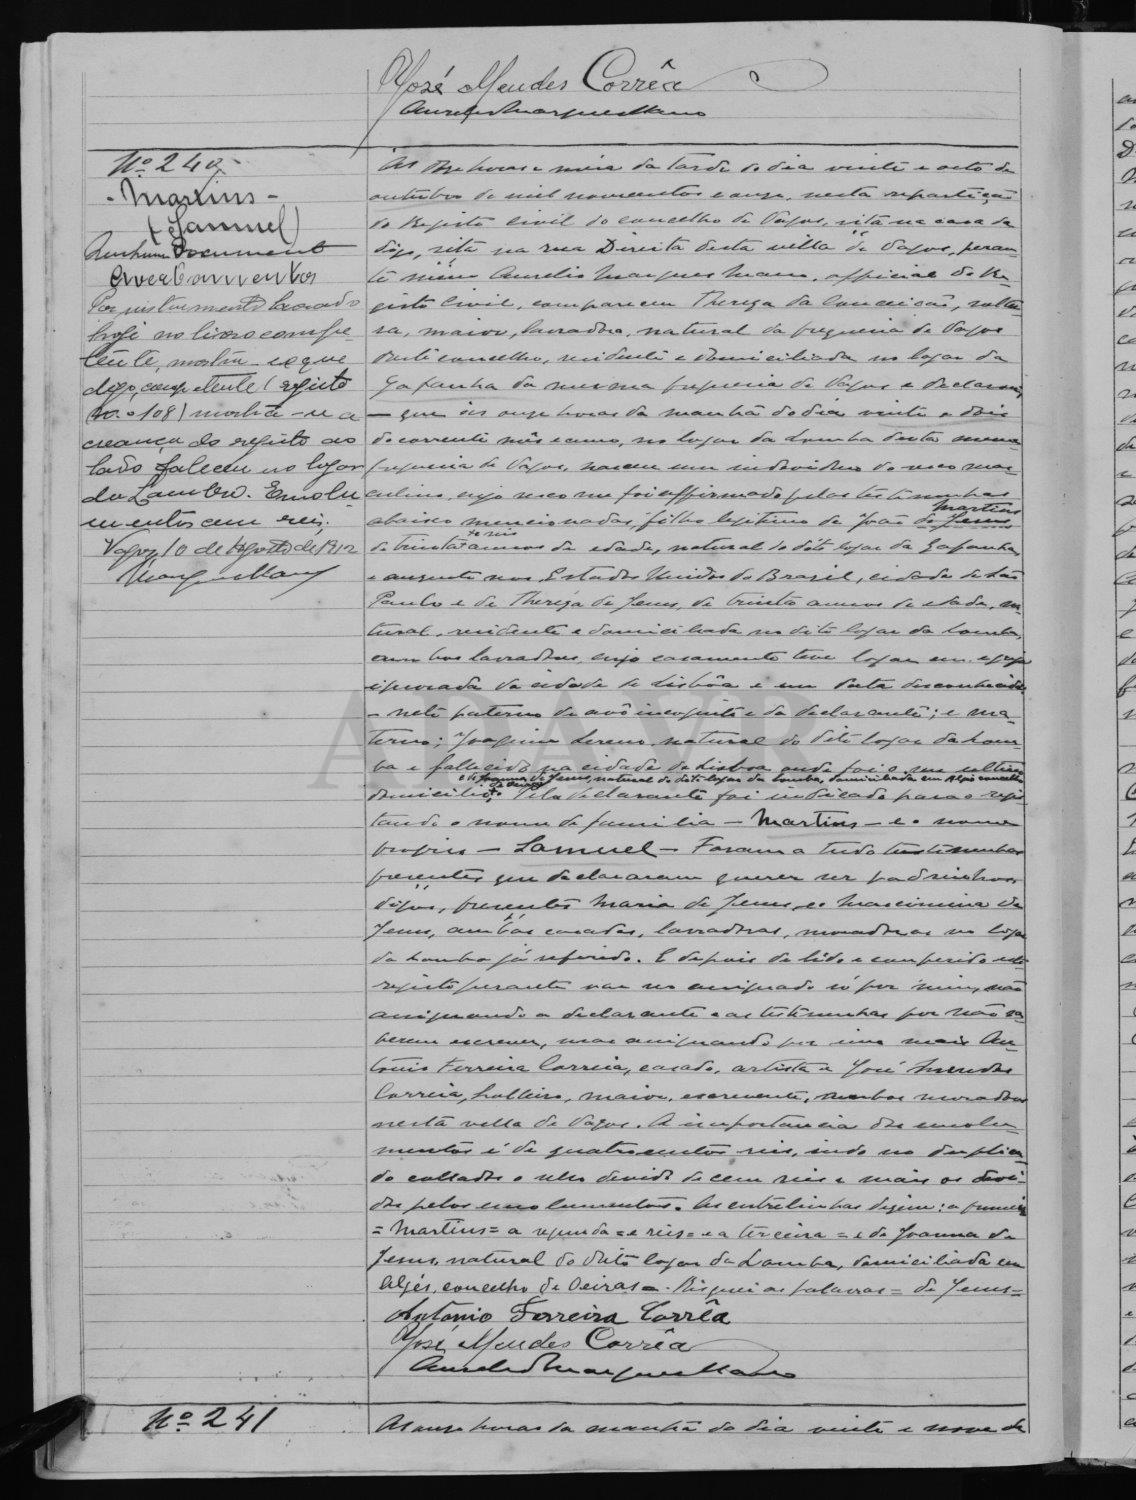 José Mendes Corrêa
Aurelio Marques Mano
Nº 240
- Martins -
(Samuel)
Nenhum Documento
Averbamentos
Por instrumento lavrado
hoje no livro compe-
tente, mostra-se que
digo, competente (registo
no. 108) mostra-se a
creança do registo ao
lado faleceu no logar
da Lomba. Emolu-
mentos cem reis.
Vagos, 10 de Agosto de 1912
Marques Mano
Ás horas e meia da tarde do dia vinte e oito de
outubro de mil novecentos e onze, nesta repartição
do Registo Civil do concelho de Vagos, sita na casa da
digo, sita na rua Direita desta villa de Vagos, peran-
te mim Aurelio Marques Mano, official do Re-
gisto Civil, compareceu Thereza da Conceição, soltei-
ra, maior, lavradora, natural da freguesia de Vagos
deste concelho, residente e domiciliada no logar da
Gafanha da mesma freguesia de Vagos e declarou,
— que ás onze horas da manhã do dia vinte e dois
do corrente mês e anno, no logar da Lomba desta mesma
freguesia de Vagos, nasceu um individuo do sexo mas-
culino, cujo sexo me foi affirmado pelas testimunhas
abaixo mencionadas, filho legitimo de João de Jesus Martins
de trinta e seis annos de edade, natural do dito logar da Gafanha
e ausente nos Estados Unidos do Brasil, cidade de São
Paulo e de Thereza de Jesus, de trinta annos de edade, na-
tural, residente e domiciliada no dito logar da Lomba,
ambos lavradores, cujo casamento teve logar em egreja
ignorada da cidade de Lisbôa e em data desconhecida
— neto paterno de avô incognito e da declarante; e ma-
terno; Joaquim Sereno, natural do dito logar da Lom-
ba e fallecido na cidade de Lisboa, onde foi o seu ultimo
e de Joanna de Jesus, natural do dito logar da Lomba, domiciliada em Algés concelho
de Oeiras
domicilio. Pela declarante foi indicado para o regis-
tando o nome de familia — Martins — e o nome
proprio — Samuel — Foram a tudo testimunhas
presentes que declararam querer ser padrinhos
digo, presentes Maria de Jesus, e Maximina de
Jesus, ambas casadas, lavradoras, moradoras no logar
da Lomba já referido. E depois de lido e conferido este
registo perante vae ser assignado só por mim, não
assignando a declarante e as testimunhas por não sa-
berem escrever, mas assignando por uma mais An-
tonio Ferreira Correia, casado, artista e José Mendes
Correia, solteiro, maior, escrevente, ambos moradores
nesta villa de Vagos. A importancia dos emolu-
mentos é de quatrocentos reis, indo no duplica-
do collados o sello devido de cem reis e mais os devi-
dos pelos emolumentos. As entrelinhas dizem: a primeira
= Martins = a segunda = e seis = e a terceira = e de Joanna de
Jesus, natural do dito logar da Lomba, domiciliada em
Algés, concelho de Oeiras =. Risquei as palavras = de Jesus =
Antonio Ferreira Corrêa
José Mendes Corrêa
Aurelio Marques Mano
Nº 241
Ás onze horas da manhã do dia vinte e nove de